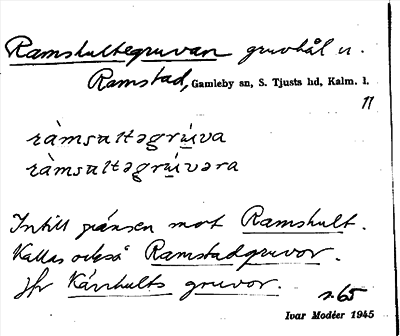 Ramshultegruvan gruvhål n.
Ramstad, Gamleby sn, S. Tjusts hd, Kalm. l.
11
ràmsaltəgrú̱va
ràmsaltəgrú̱vəra
Intill gränsen mot Ramshult.
Kallas också Ramstadgruvor.
Jfr Kärrhults gruvor.
s. 65
Ivar Modéer 1945